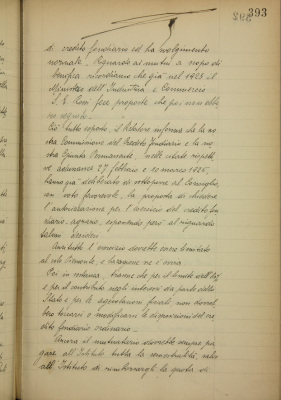 393
di credito fondiario ed ha svolgimento
normale. Riguardo ai mutui a scopo di
bonifica ricordiamo che già nel 1923 il
Ministero dell'Industria e Commercio
S. E. fece proposte che poi non ebbe
ro seguito.
Ciò tutto esposto, il Relatore informa che la no
stra Commissione del Credito Fondiario e la no
stra Giunta Permanente, nelle rispetti
ve adunanze 27 febbraio e 10 marzo 1925,
hanno già deliberato di sottoporre al Consiglio,
con voto favorevole, la proposta di chiedere
l'autorizzazione per l'esercizio del credito fon
diario-agrario, esponendo però al riguardo
talune
Anzitutto l'esercizio dovrebbe essere limitato
al solo Piemonte, e la ragione ne è ovvia.
Poi in sostanza, tranne che per il limite dell'
e per il contributo negli interessi da parte dello
Stato e per le agevolazioni fiscali, non dovreb
bero variarsi o modificarsi le disposizioni del cre
dito fondiario ordinario.
Ancora il mutuatario dovrebbe sempre pa
gare all'Istituto tutta la semestralità, salvo
all'Istituto di rimborsargli la quota di